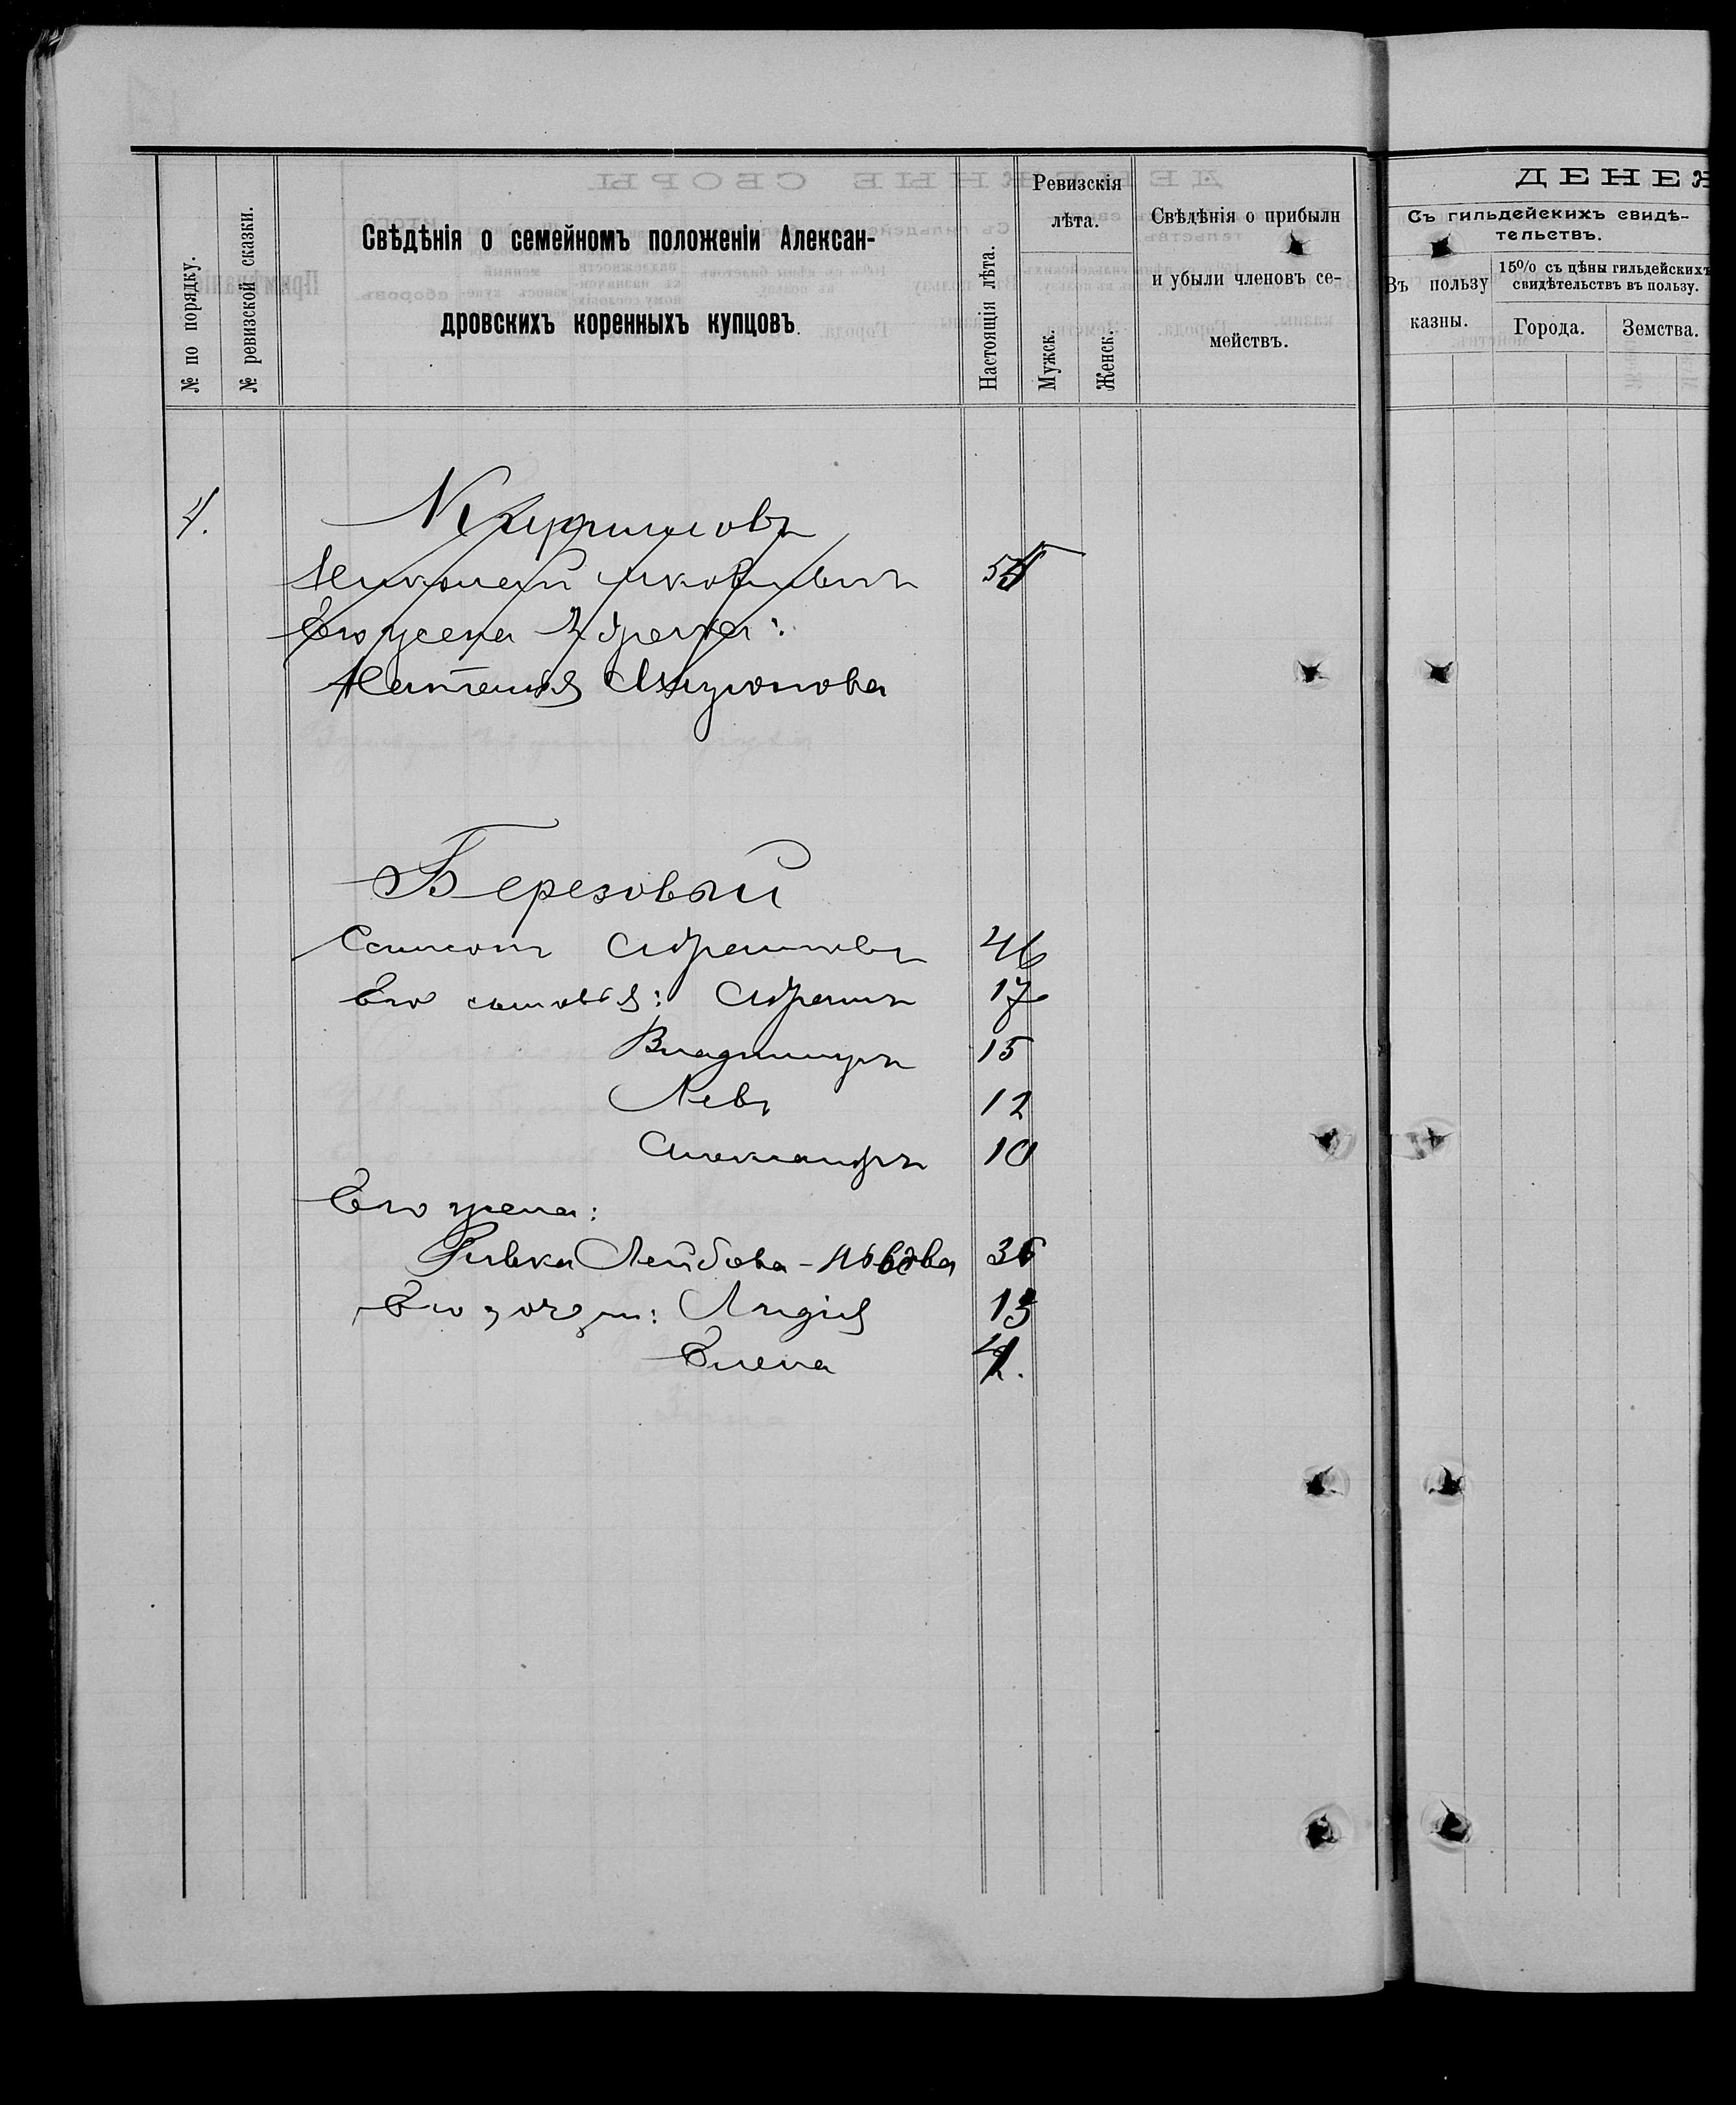 № по порядку.
№ ревизской сказки.
Свѣдѣнія о семейномъ положеніи Алексан-
дровскихъ коренныхъ купцовъ.
Настоящія лѣта.
Ревизскія
лѣта.
Мужск.
Женск.
Свѣдѣнія о прибыли
и убыли членовъ се-
мействъ.
ДЕНЕЖ
Съ гильдейскихъ свидѣ-
тельствъ.
Въ пользу
казны.
15% съ цѣны гильдейскихъ
свидѣтельствъ въ пользу.
Города.
Земства.
4.
Николай Яковлевичъ
Его жена 2 брака:
Наталія
Березовый
Самсонъ Абрамовъ 46
Его сыновья: Абрамъ 17
Владимиръ 15
Левъ 12
Александръ 10
Его жена:
Ривка Лейбова-Новдва 36
Его дочери: Лидія 13
Елена